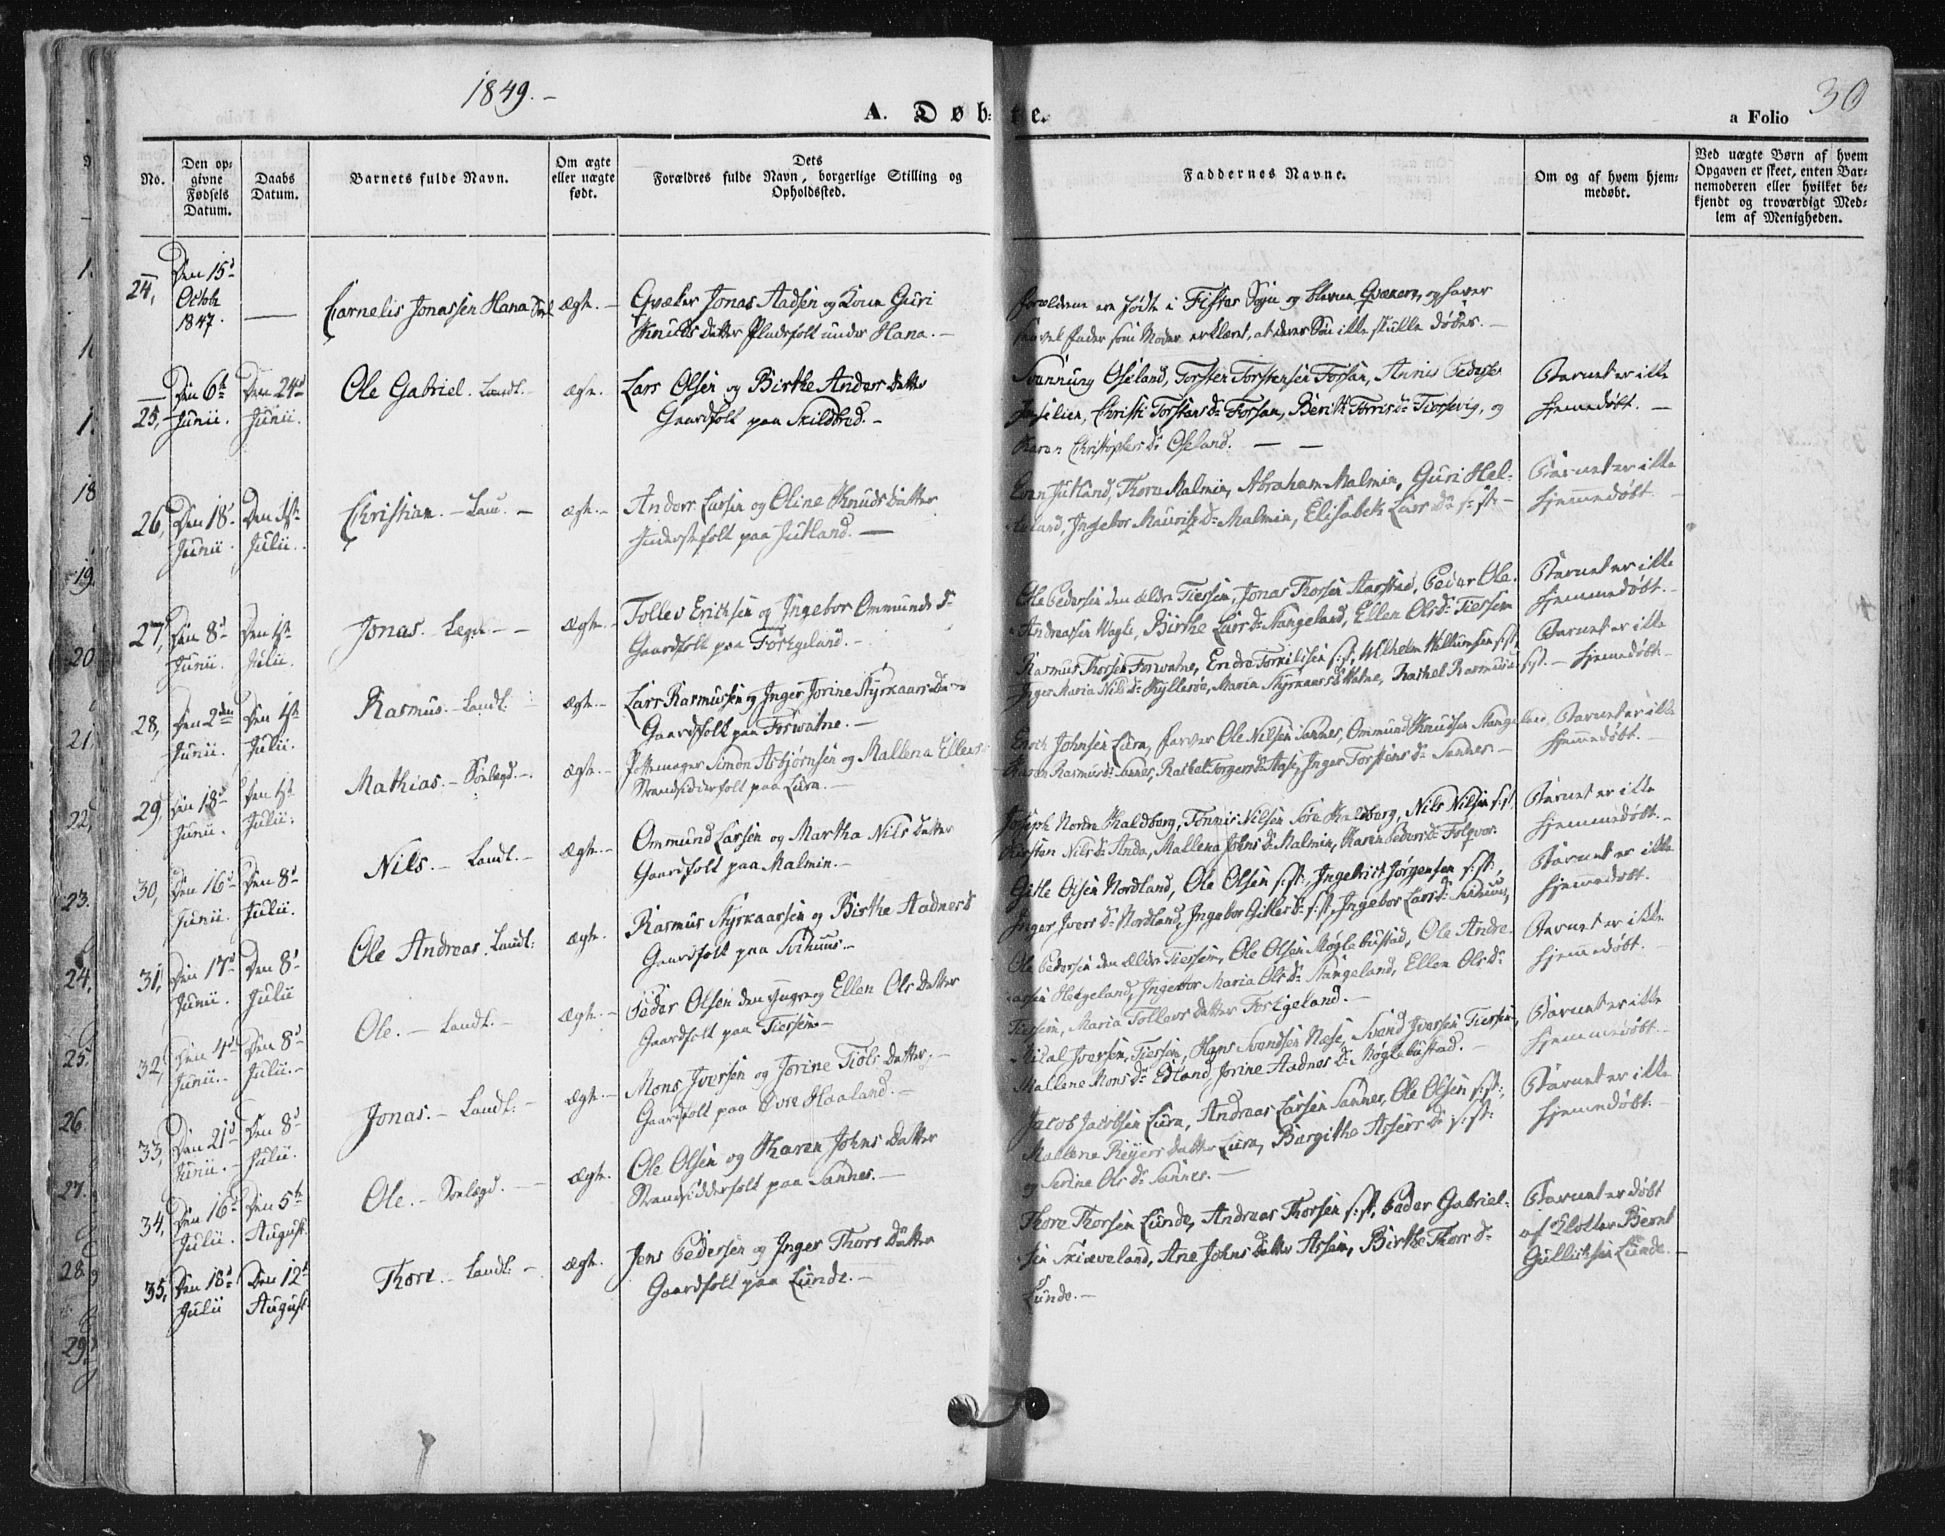 1849.-
A. Døb=te.
a Folio
30
No.
Den op=
givne
Fødsels
Datum.
Daabs
Datum.
Barnets fulde Navn.
Om ægte
eller uægte
født.
Dets
Forældres fulde Navn, borgerlige Stilling og
Opholdssted.
Faddernes Navne.
Om og af hvem hjem=
medøbt.
Ved uægte Børn af hvem
Opgaven er skeet, enten Bar=
nemoderen eller hvilket be=
kjendt og troværdigt Med=
lem af Menigheden.
24, Den 15d
Octob
1847. — Cornelis Jonassen Hana ægte. - Qvæker Jonas Aadsen og Kone Guri
Knuds Datter Pladsfolk under Hana. -
Forældrene ere fødte i Sogn og blevne Qvækere, og haver
saavel Fader som Moder erklært, at deres Søn ikke skulle døbes. -
25, Den 6te
Junii. Den 24d
Junii. Ole Gabriel. Landt. - ægte. Lars Olsen og Birthe Anders Datter
Gaardfolk paa Skildbred. -
Svennung Oseland, Torsten Torstensen Forsan, Peders
Christi Torstens Dr Forsan, Berit Dr og
Karen Christophers Dr Oseland. — —
Barnet er ikke
hjemmedøbt. -
26, Den 18d
Junii. Den 1ste
Julii. Christian. - Lau. - ægte. - Anders Larsen og Oline Knuds Datter
Inderstefolk paa Jutland. -
Even Jutland, Thore Malmin, Abraham Malmin, Guri Hel=
land, Ingebor Mauritz Dr Malmin, Elisabeth Lars Dr s: st: -
Barnet er ikke
hjemmedøbt. -
27, Den 8d
Junii. Den 1ste
Julii. Jonas. Legd. - - ægte. - Tollev Erichsen og Ingebor Ommunds Dr
Gaardfolk paa Folkgeland. -
Ole Pedersen den ældre Tiessem, Jonas Thorsen Aarstad, Peder Ole.
Andreassen Vagle, Birthe Lars Dr Stangeland, Ellen Ols Dr Tiessem
Barnet er ikke
hjemmedøbt. -
28, Den 2den
Junii. Den 1ste
Julii. Rasmus. - Landt. ægte. - Lars Rasmussen og Inger Jorine Styrkaars Da
Gaardfolk paa Forwatne. -
Rasmus Thorsen Forwatne, Endre Torkilsen s: st, Wilhelm Willumsen s: st,
Inger Maria Nils Dr Kyllesøe, Maria Styrkaars Dr Watne, Rachel Rasmus s: st. -
Barnet er ikke
hjemmedøbt. -
29, Den 18d
Junii. Den 1ste
Julii. Mathias. - Sønlegd. - ægte. - Pottemager Simon Asbjørnsen og Mallena Ellens
Strandsidderfolk paa Lura. -
Enoch Johnsen Lura, farver Ole Nilsen Sannes, Ommund Knudsen Stangeland,
Karen Rasmus Dr Sannes, Rachel Torgers Dr Aase, Inger Torstens Dr Sandnes. -
Barnet er ikke
hjemmedøbt. -
30, Den 16d
Junii. Den 8d
Julii. Nils. - Landt. - ægte. - Ommund Larsen og Martha Nils Datter
Gaardfolk paa Malmin. -
Joseph Nordre Kaldberg, Tønnis Nilsen Søre Kaldberg, Nils Nilsen s: st
Kirsten Nils Dr Anda, Mallena Johns Dr Malmin, Karen Peders Dr Folqvor.
Barnet er ikke
hjemmedøbt. -
31, Den 17d
Junii. Den 8d
Julii Ole Andreas. Landt: ægte. Rasmus Styrkaarsen og Birthe Aadnes D
Gaardfolk paa Svihuus. -
Gitle Olsen Nordland, Ole Olsen s: st:, Ingebrict Jørgensen s: st:,
Inger Ivers Dr Nordland, Ingebor Gitles Dr s: st, Ingebor Lars Dr
Barnet er ikke
hjemmedøbt.
32, Den 4d
Junii. - Den 8d
Julii. - Ole. - Landt. - ægte. - Peder Olsen den yngre og Ellen Ols Datter
Gaardfolk paa Tiessem. -
Ole Pedersen den ældre Tiessem, Ole Olsen Møglebustad, Ole Andre.
assen Helgeland, Ingebor Maria Ols Dr Stangeland, Ellen Ols Dr
Tiessem, Maria Tollevs Datter Folkgeland. -
Barnet er ikke
hjemmedøbt. -
33, Den 21d
Junii. - Den 8d
Julii. Jonas. - Landt. - ægte. - Mons Iversen og Jorine Tiøls Datter. -
Gaardfolk paa Øvre Haaland. -
Mical Iversen, Tiessem, Hans Svendsen Næse, Svend Iversen Tiessem,
Mallene Mons Dr Edland, Jorine Aadnes Dr Møglebustad. -
Barnet er ikke
hjemmedøbt. -
34, Den 16d
Julii. Den 5te
August. Ole. - Sønlægd. - ægte. Ole Olsen og Karen Johns Datter
Strandsidderfolk paa Sannes. -
Jacob Jacobsen Lura, Andreas Larsen Sannes, Ole Olsen s: st:,
Mallene Reiers Datter Lura, Bergithe Assers Dr s: st:
og Serine Ols Dr Sannes. -
Barnet er ikke
hjemmedøbt. -
35, Den 18d
Julii Den 12te
August. Thore. - Landt: - ægte. Jens Pedersen og Inger Thors Datter
Gaardfolk paa Lunde. -
Thore Thorsen Lunde, Andreas Thorsen s: st, Peder Gabriel=
sen Skiæveland, Ane Johns Datter Assen, Birthe Thors Dr
Lunde. -
Barnet er døbt
af Klokker Bernt
Gullichsen Lunde. -
18
19.
20
21.
22,
23.
24,
25.
26.
27.
28
29,